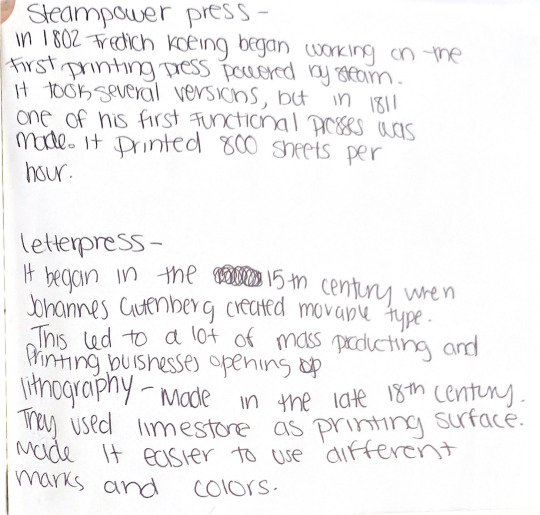 Steampower press -
in 1802 Fredich Koeing began working on the
first printing press powered by steam.
It took several versions, but in 1811
one of his first functional presses was
made. It printed 800 sheets per
hour.
letterpress -
It began in the 15th century when
Johannes Gutenberg created movable type.
This led to a lot of mass producting and
Printing buishesses opening up
lithography - Made in the late 18th century.
They used limestore as printing surface.
Made it easier to use different
marks and colors.